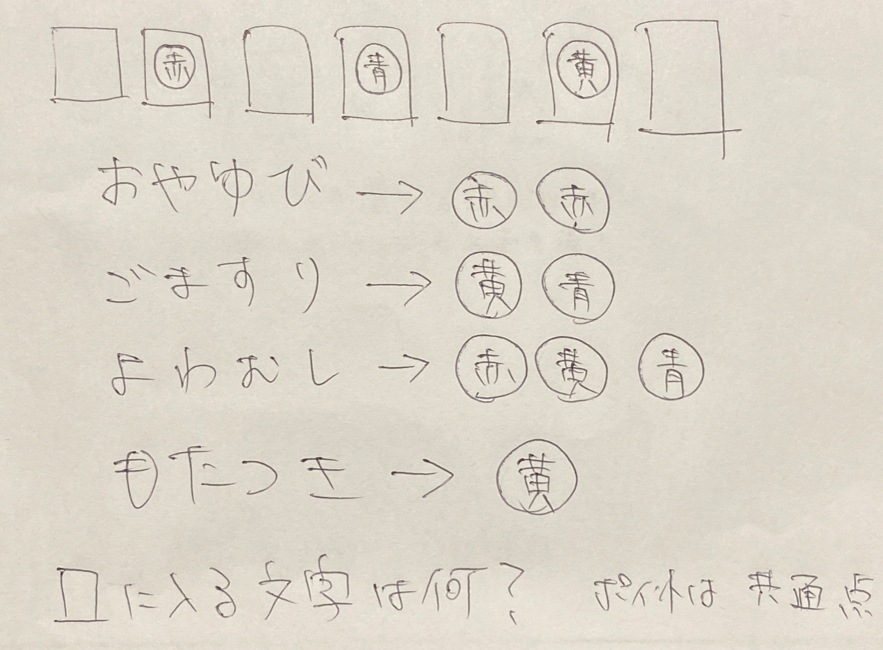 赤 青 黄
おやゆび → 赤 赤
ごますり → 黄 青
よわむし → 赤 黄 青
もたつき → 黄
□に入る文字は何? ポイントは 共通点